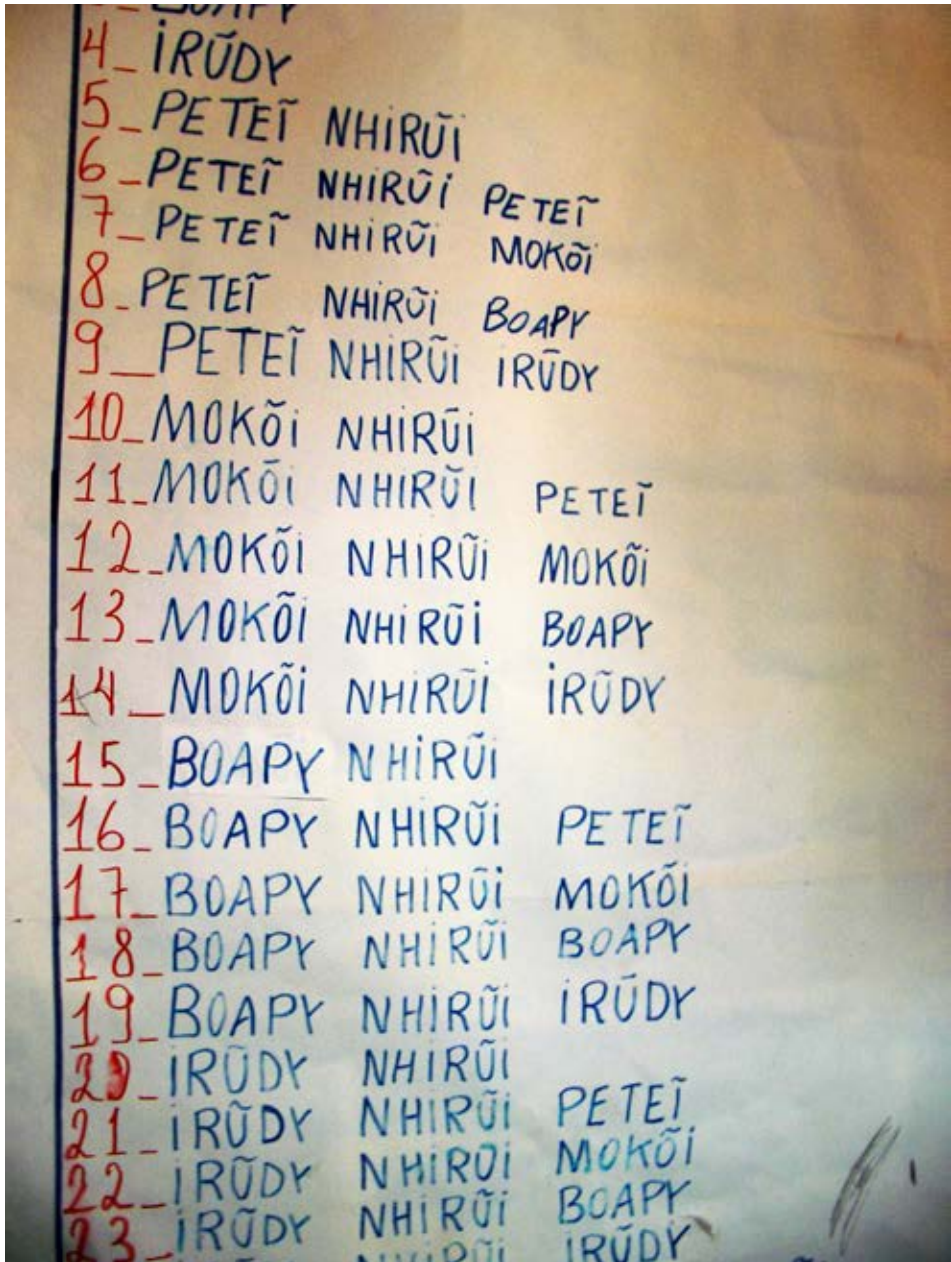 BOAPY
4_ IRŨDY
5_ PETEĨ NHIRŨI
6_PETEĨ NHIRŨI PETEĨ
7_PETEĨ NHIRŨI MOKÕI
8_PETEĨ NHIRŨI BOAPY
9_PETEĨ NHIRŨI IRŨDY
10_MOKÕI NHIRŨI
11_MOKÕI NHIRŨI PETEĨ
12_MOKÕI NHIRŨI MOKÕI
13_MOKÕI NHIRŨI BOAPY
14_MOKÕI NHIRŨI IRŨDY
15_BOAPY NHIRŨI
16_BOAPY NHIRŨI PETEĨ
17_BOAPY NHIRŨI MOKÕI
18_BOAPY NHIRŨI BOAPY
19_BOAPY NHIRŨI IRŨDY
20_IRŨDY NHIRŨI
21_IRŨDY NHIRŨI PETEĨ
22_IRŨDY NHIRŨI MOKÕI
23_IRŨDY NHIRŨI BOAPY
NHIRŨI IRŨDY